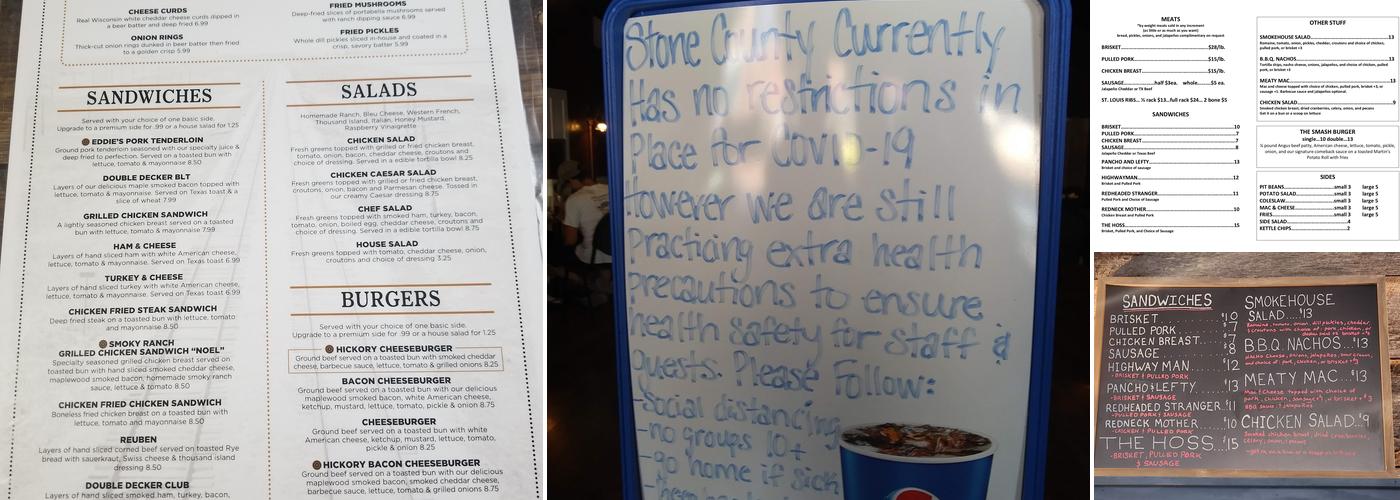 CHEESE CURDS
Real Wisconsin white cheddar cheese curds dipped in
a beer batter and deep fried 6.99
ONION RINGS
Thick-cut onion rings dunked in beer batter then fried
to a golden crisp 5.99
FRIED MUSHROOMS
Deep-fried slices of portabella mushrooms served
with ranch dipping sauce 6.99
FRIED PICKLES
Whole dill pickles sliced in-house and coated in a
crisp, savory batter 5.99
SANDWICHES
Served with your choice of one basic side.
Upgrade to a premium side for .99 or a house salad for 1.25
EDDIE'S PORK TENDERLOIN
Ground pork tenderloin seasoned with our specialty juice &
deep fried to perfection. Served on a toasted bun with
lettuce, tomato & mayonnaise 8.50
DOUBLE DECKER BLT
Layers of our delicious maple smoked bacon topped with
lettuce, tomato & mayonnaise. Served on Texas toast & a
slice of wheat 7.99
GRILLED CHICKEN SANDWICH
A lightly seasoned chicken breast served on a toasted
bun with lettuce, tomato & mayonnaise 7.99
HAM & CHEESE
Layers of hand sliced ham with white American cheese,
lettuce, tomato & mayonnaise. Served on Texas toast 6.99
TURKEY & CHEESE
Layers of hand sliced turkey with white American cheese,
lettuce, tomato & mayonnaise. Served on Texas toast 6.99
CHICKEN FRIED STEAK SANDWICH
Deep fried steak on a toasted bun with lettuce, tomato
and mayonnaise 8.50
SMOKY RANCH
GRILLED CHICKEN SANDWICH "NOEL"
Specialty seasoned grilled chicken breast served on
toasted bun with hand sliced smoked cheddar cheese,
maplewood smoked bacon, homemade smoky ranch
sauce, lettuce & tomato 8.50
CHICKEN FRIED CHICKEN SANDWICH
Boneless fried chicken breast on a toasted bun with
lettuce, tomato and mayonnaise 8.50
REUBEN
Layers of hand sliced corned beef served on toasted Rye
bread with sauerkraut, Swiss cheese & thousand island
dressing 8.50
DOUBLE DECKER CLUB
Layers of hand sliced smoked ham, turkey, bacon,
SALADS
Homemade Ranch, Bleu Cheese, Western French,
Thousand Island, Italian, Honey Mustard,
Raspberry Vinaigrette
CHICKEN SALAD
Fresh greens topped with grilled or fried chicken breast,
tomato, onion, bacon, cheddar cheese, croutons and
choice of dressing. Served in a edible tortilla bowl 8.25
CHICKEN CAESAR SALAD
Fresh greens topped with grilled or fried chicken breast,
croutons, onion, bacon and Parmesan cheese. Tossed in
our creamy Caesar dressing 8.75
CHEF SALAD
Fresh greens topped with smoked ham, turkey, bacon,
tomato, onion, boiled egg, cheddar cheese, croutons and
choice of dressing. Served in a edible tortilla bowl 8.75
HOUSE SALAD
Fresh greens with tomato, cheddar cheese, onion,
croutons and choice of dressing 3.25
BURGERS
Served with your choice of one basic side.
Upgrade to a premium side for .99 or a house salad for 1.25
HICKORY CHEESEBURGER
Ground beef served on a toasted bun with smoked cheddar
cheese, barbecue sauce, lettuce, tomato & grilled onions 8.25
BACON CHEESEBURGER
Ground beef served on a toasted bun with our delicious
maplewood smoked bacon, white American cheese,
ketchup, mustard, lettuce, tomato, pickle & onion 8.75
CHEESEBURGER
Ground beef served on a toasted bun with white
American cheese, ketchup, mustard, lettuce, tomato,
pickle & onion 8.25
HICKORY BACON CHEESEBURGER
Ground beef served on a toasted bun with our delicious
maplewood smoked bacon, smoked cheddar cheese,
barbecue sauce, lettuce, tomato & grilled onions 8.75
Stone County Currently
Has no restrictions in
Place for Covid-19
However we are still
Practicing extra health
Precautions to ensure
health safety for staff &
guests. Please Follow:
-Social distancing
-no groups 10+
-go home if sick
MEATS
*by weight meats sold in any increment
(as little or as much as you want)
bread, pickles, onions, and jalapeños complimentary on request
BRISKET $28/lb.
PULLED PORK $15/lb.
CHICKEN BREAST $15/lb.
SAUSAGE half $3ea. whole $5 ea.
Jalapeño Cheddar or TX Beef
ST. LOUIS RIBS... ½ rack $13...full rack $24... 2 bone $5
SANDWICHES
BRISKET 10
PULLED PORK 7
CHICKEN BREAST 7
SAUSAGE 8
Jalapeño Cheddar or Texas Beef
PANCHO AND LEFTY 13
Brisket and Choice of Sausage
HIGHWAYMAN 12
Brisket and Pulled Pork
REDHEADED STRANGER 11
Pulled Pork and Choice of Sausage
REDNECK MOTHER 10
Chicken Breast and Pulled Pork
THE HOSS 15
Brisket, Pulled Pork, and Choice of Sausage
OTHER STUFF
SMOKEHOUSE SALAD 13
Romaine, tomato, onion, pickles, cheddar, croutons and choice of chicken,
pulled pork, or brisket +3
B.B.Q. NACHOS 13
Tortilla chips, nacho cheese, onions, jalapeños, and choice of chicken, pulled
pork, or brisket +3
MEATY MAC 13
Mac and cheese topped with choice of chicken, pulled pork, brisket +3, or
sausage +1. Barbecue sauce and jalapeños optional.
CHICKEN SALAD 9
Smoked chicken breast, dried cranberries, celery, onion, and pecans
Get it on a bun or a scoop on lettuce
THE SMASH BURGER
single...10 double...13
¼ pound Angus beef patty, American cheese, lettuce, tomato, pickle,
onion, and our signature comeback sauce on a toasted Martin's
Potato Roll with fries
SIDES
PIT BEANS small 3 large 5
POTATO SALAD small 3 large 5
COLESLAW small 3 large 5
MAC & CHEESE small 3 large 5
FRIES small 3 large 5
SIDE SALAD 4
KETTLE CHIPS 2
SANDWICHES
BRISKET $10
PULLED PORK $7
CHICKEN BREAST $7
SAUSAGE $8
HIGHWAY MAN $12
-BRISKET & PULLED PORK
PANCHO & LEFTY $13
-BRISKET & SAUSAGE
REDHEADED STRANGER $11
PULLED PORK & SAUSAGE
REDNECK MOTHER $10
-CHICKEN & PULLED PORK
THE HOSS $15
-BRISKET, PULLED PORK
& SAUSAGE
SMOKEHOUSE
SALAD....$13
B.B.Q. NACHOS...$13
MEATY MAC...$13
CHICKEN SALAD...$9